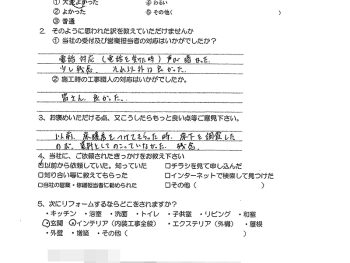 ① 大変よかった ④ わるい
② よかった ⑤ その他(　　)
③ 普通
2. そのように思われた訳を教えていただけませんか
① 当社の受付及び営業担当者の対応はいかがでしたか?
電話対応（電話を受けた時）声が
少し残念。それ以外は良かった。
② 施工時の工事職人の対応はいかがでしたか?
皆さん 良かった。
3、お褒めいただける点、又こうしたらもっと良い点等ご意見下さい。
以前、床暖房をつけてもらった時、床下を
のが、残念。
4、当社に、ご依頼されたきっかけをお教え下さい
☑以前から依頼していた。知っていた □チラシを見て申し込んだ
□知り合い等に教えてもらった □インターネットで検索して見つけた
□当社の営業・修繕担当者に勧められた □その他(　　)
5、次にリフォームするならどこをされますか?
・キッチン ・浴室 ・洗面 ・トイレ ・子供室 ・リビング ・和室
・玄関 ・インテリア（内装工事全般） ・エクステリア（外構） ・屋根
・外壁 ・増築 ・その他(　　)